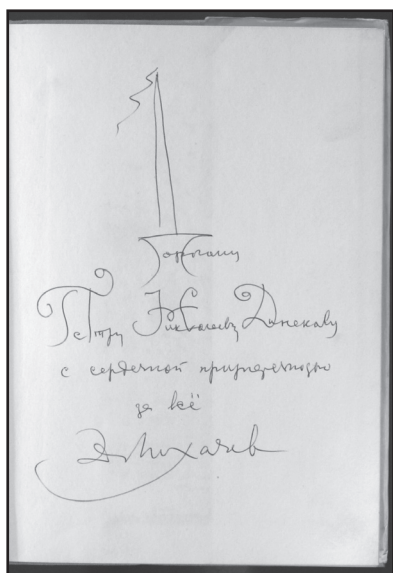 Дорогому
Петру Николаевичу Динекову
с сердечной признательностью
за всё
Д Лихачев